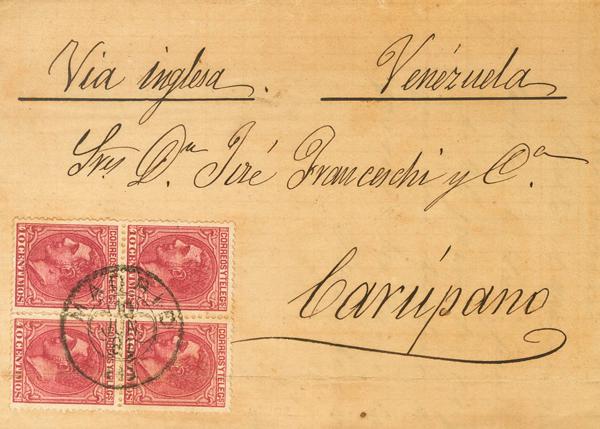 Via inglesa. Venézuela
Sres D.n José Franceschi y C.a
Carúpano
CORREOS Y TELEGS
10 CENTIMOS
CORREOS Y TELEGS
10 CENTIMOS
CORREOS Y TELEGS
10 CENTIMOS
CORREOS Y TELEGS
10 CENTIMOS
MADRID